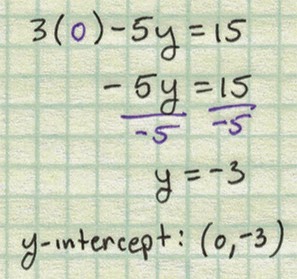 3(0)-5y=15
-5y=15
-5 -5
y=-3
y-intercept: (0,-3)